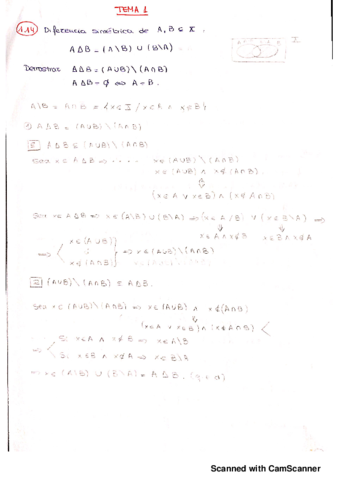 TEMA 1
1.14 Diferencia simétrica de A, B ⊆ X.
A Δ B = (A \ B) ∪ (B \ A)
X
Demostrar A Δ B = (A ∪ B) \ (A ∩ B)
A Δ B = ∅ ⇔ A = B.
① A Δ B = (A ∪ B) \ (A ∩ B)
⊆ A Δ B ⊆ (A ∪ B) \ (A ∩ B)
Sea x ∈ A Δ B ⇒ .... x ∈ (A ∪ B) \ (A ∩ B)
x ∈ (A ∪ B) ∧ x ∉ (A ∩ B).
(x ∈ A ∨ x ∈ B) ∧ (x ∉ A ∩ B)
Sea x ∈ A Δ B ⇒ x ∈ (A \ B) ∪ (B \ A) ⇒ (x ∈ A \ B) ∨ (x ∈ B \ A) ⇒
x ∈ A ∧ x ∉ B x ∈ B ∧ x ∉ A
⇒ x ∈ (A ∪ B)
x ∉ (A ∩ B) ⇒ x ∈ (A ∪ B) \ (A ∩ B)
⊇ (A ∪ B) \ (A ∩ B) ⊆ A Δ B.
Sea x ∈ (A ∪ B) \ (A ∩ B) ⇒ x ∈ (A ∪ B) ∧ x ∉ (A ∩ B)
(x ∈ A ∨ x ∈ B) ∧ (x ∉ A ∩ B)
⇒ Si x ∈ A ∧ x ∉ B ⇒ x ∈ A \ B
Si x ∈ B ∧ x ∉ A ⇒ x ∈ B \ A
⇒ x ∈ (A \ B) ∪ (B \ A) = A Δ B.
Scanned with CamScanner